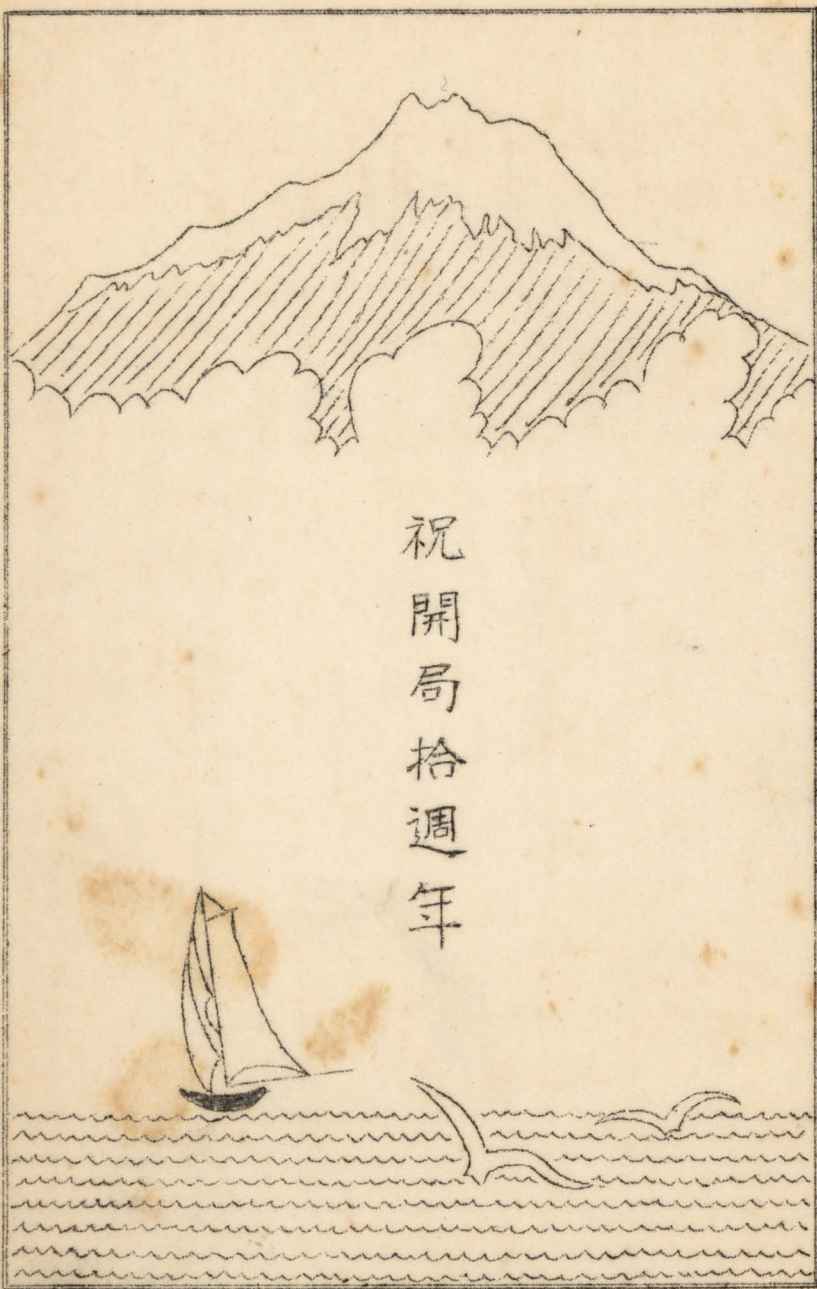 祝開局拾週年